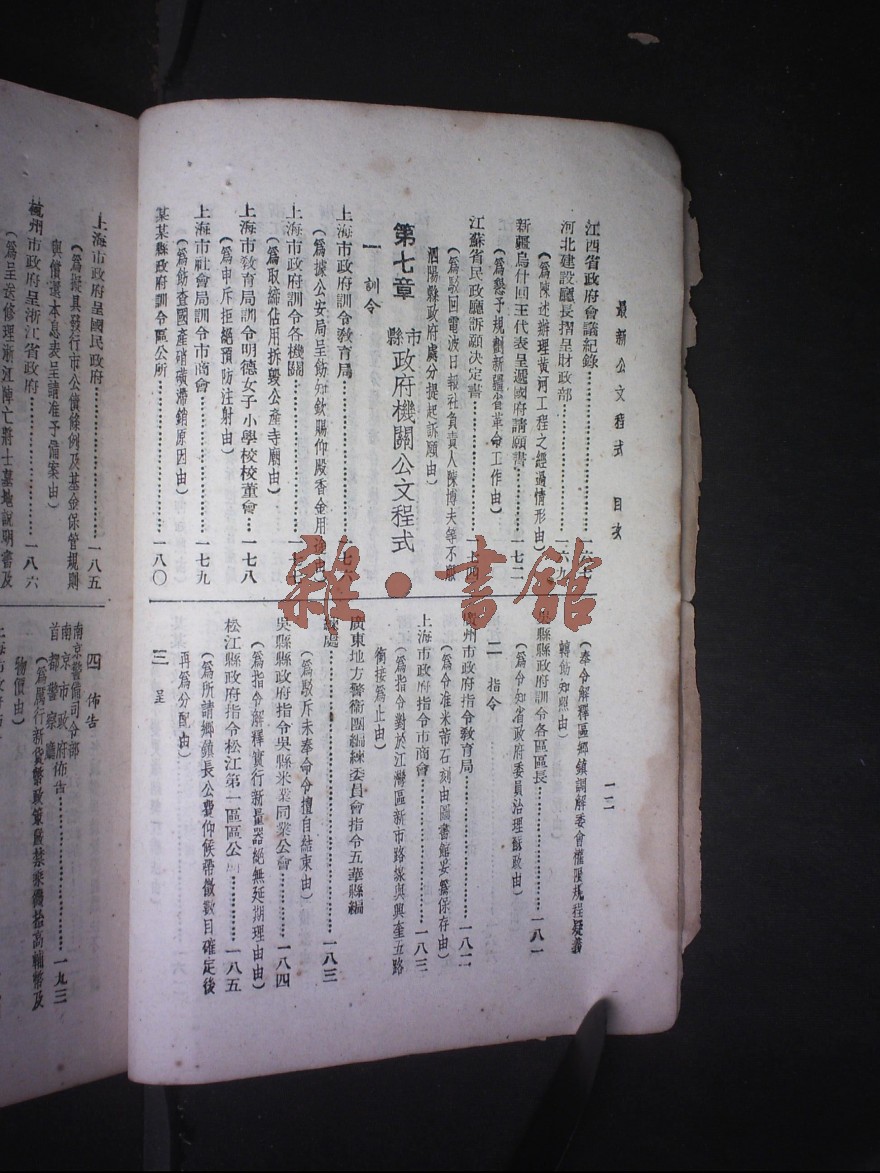 最新公文程式　目次
一二
江西省政府會議紀錄
河北建設廳長摺呈財政部
（爲陳述辦理黃河工程之經過情形由）
新疆烏什回王代表呈遞國府請願書……一七二
（爲懇予規劃新疆省革命工作由）
江蘇省民政廳訴願決定書
（爲駁回電波日報社負責人陳博夫等不服
泗陽縣政府處分提起訴願由）
第七章　市縣政府機關公文程式
一　訓令
上海市政府訓令敎育局
（爲據公安局呈飭知欽賜仰殿香金用途由）
上海市政府訓令各機關
（爲取締佔用拆毀公產寺廟由）
上海市敎育局訓令明德女子小學校校董會…一七八
（爲申斥拒絕預防注射由）
上海市社會局訓令市商會……一七九
（爲飭查國產硝磺滯銷原因由）
某某縣政府訓令區公所……一八〇
（奉令解釋區鄉鎭調解委會權限規程疑義
轉飭知照由）
縣縣政府訓令各區區長……一八一
（爲令知省政府委員治理蘇政由）
二　指令
州市政府指令敎育局……一八二
（爲令准米芾石刻由圖書館妥籌保存由）
上海市政府指令市商會……一八三
（爲指令對於江灣區新市路線與興奎五路
銜接爲止由）
廣東地方警衞團編練委員會指令五華縣編
處……一八三
（爲駁斥未奉命令擅自結束由）
吳縣縣政府指令吳縣米業同業公會……一八四
（爲指令解釋實行新量器絕無延期理由由）
松江縣政府指令松江第一區區公所……一八五
（爲所請鄉鎭長公費仰候帶徵數目確定後
再爲分配由）
三　呈
上海市政府呈國民政府……一八五
（爲擬具發行市公債條例及基金保管規則
與償還本息表呈請准予備案由）
杭州市政府呈浙江省政府……一八六
（爲呈送修理浙江陣亡將士墓地說明書及
四　佈告
南京警備司令部
南京市政府佈告……一九三
首都警察廳
（爲厲行新貨幣政策嚴禁乘機抬高輔幣及
物價由）
雜·書館